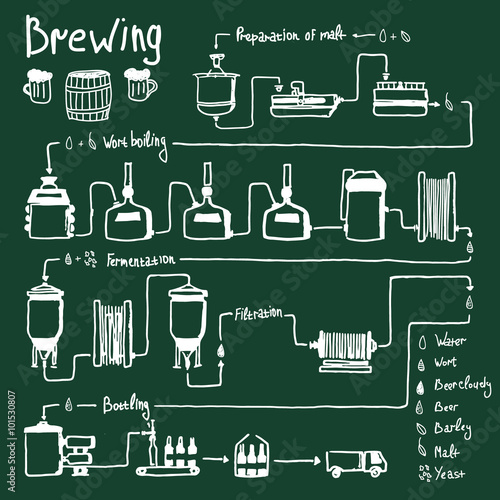 Brewing
Preparation of malt
Wort boiling
Fermentation
Filtration
Water
Wort
Beer cloudy
Beer
Barley
Malt
Yeast
Bottling
Adobe Stock | #101530807